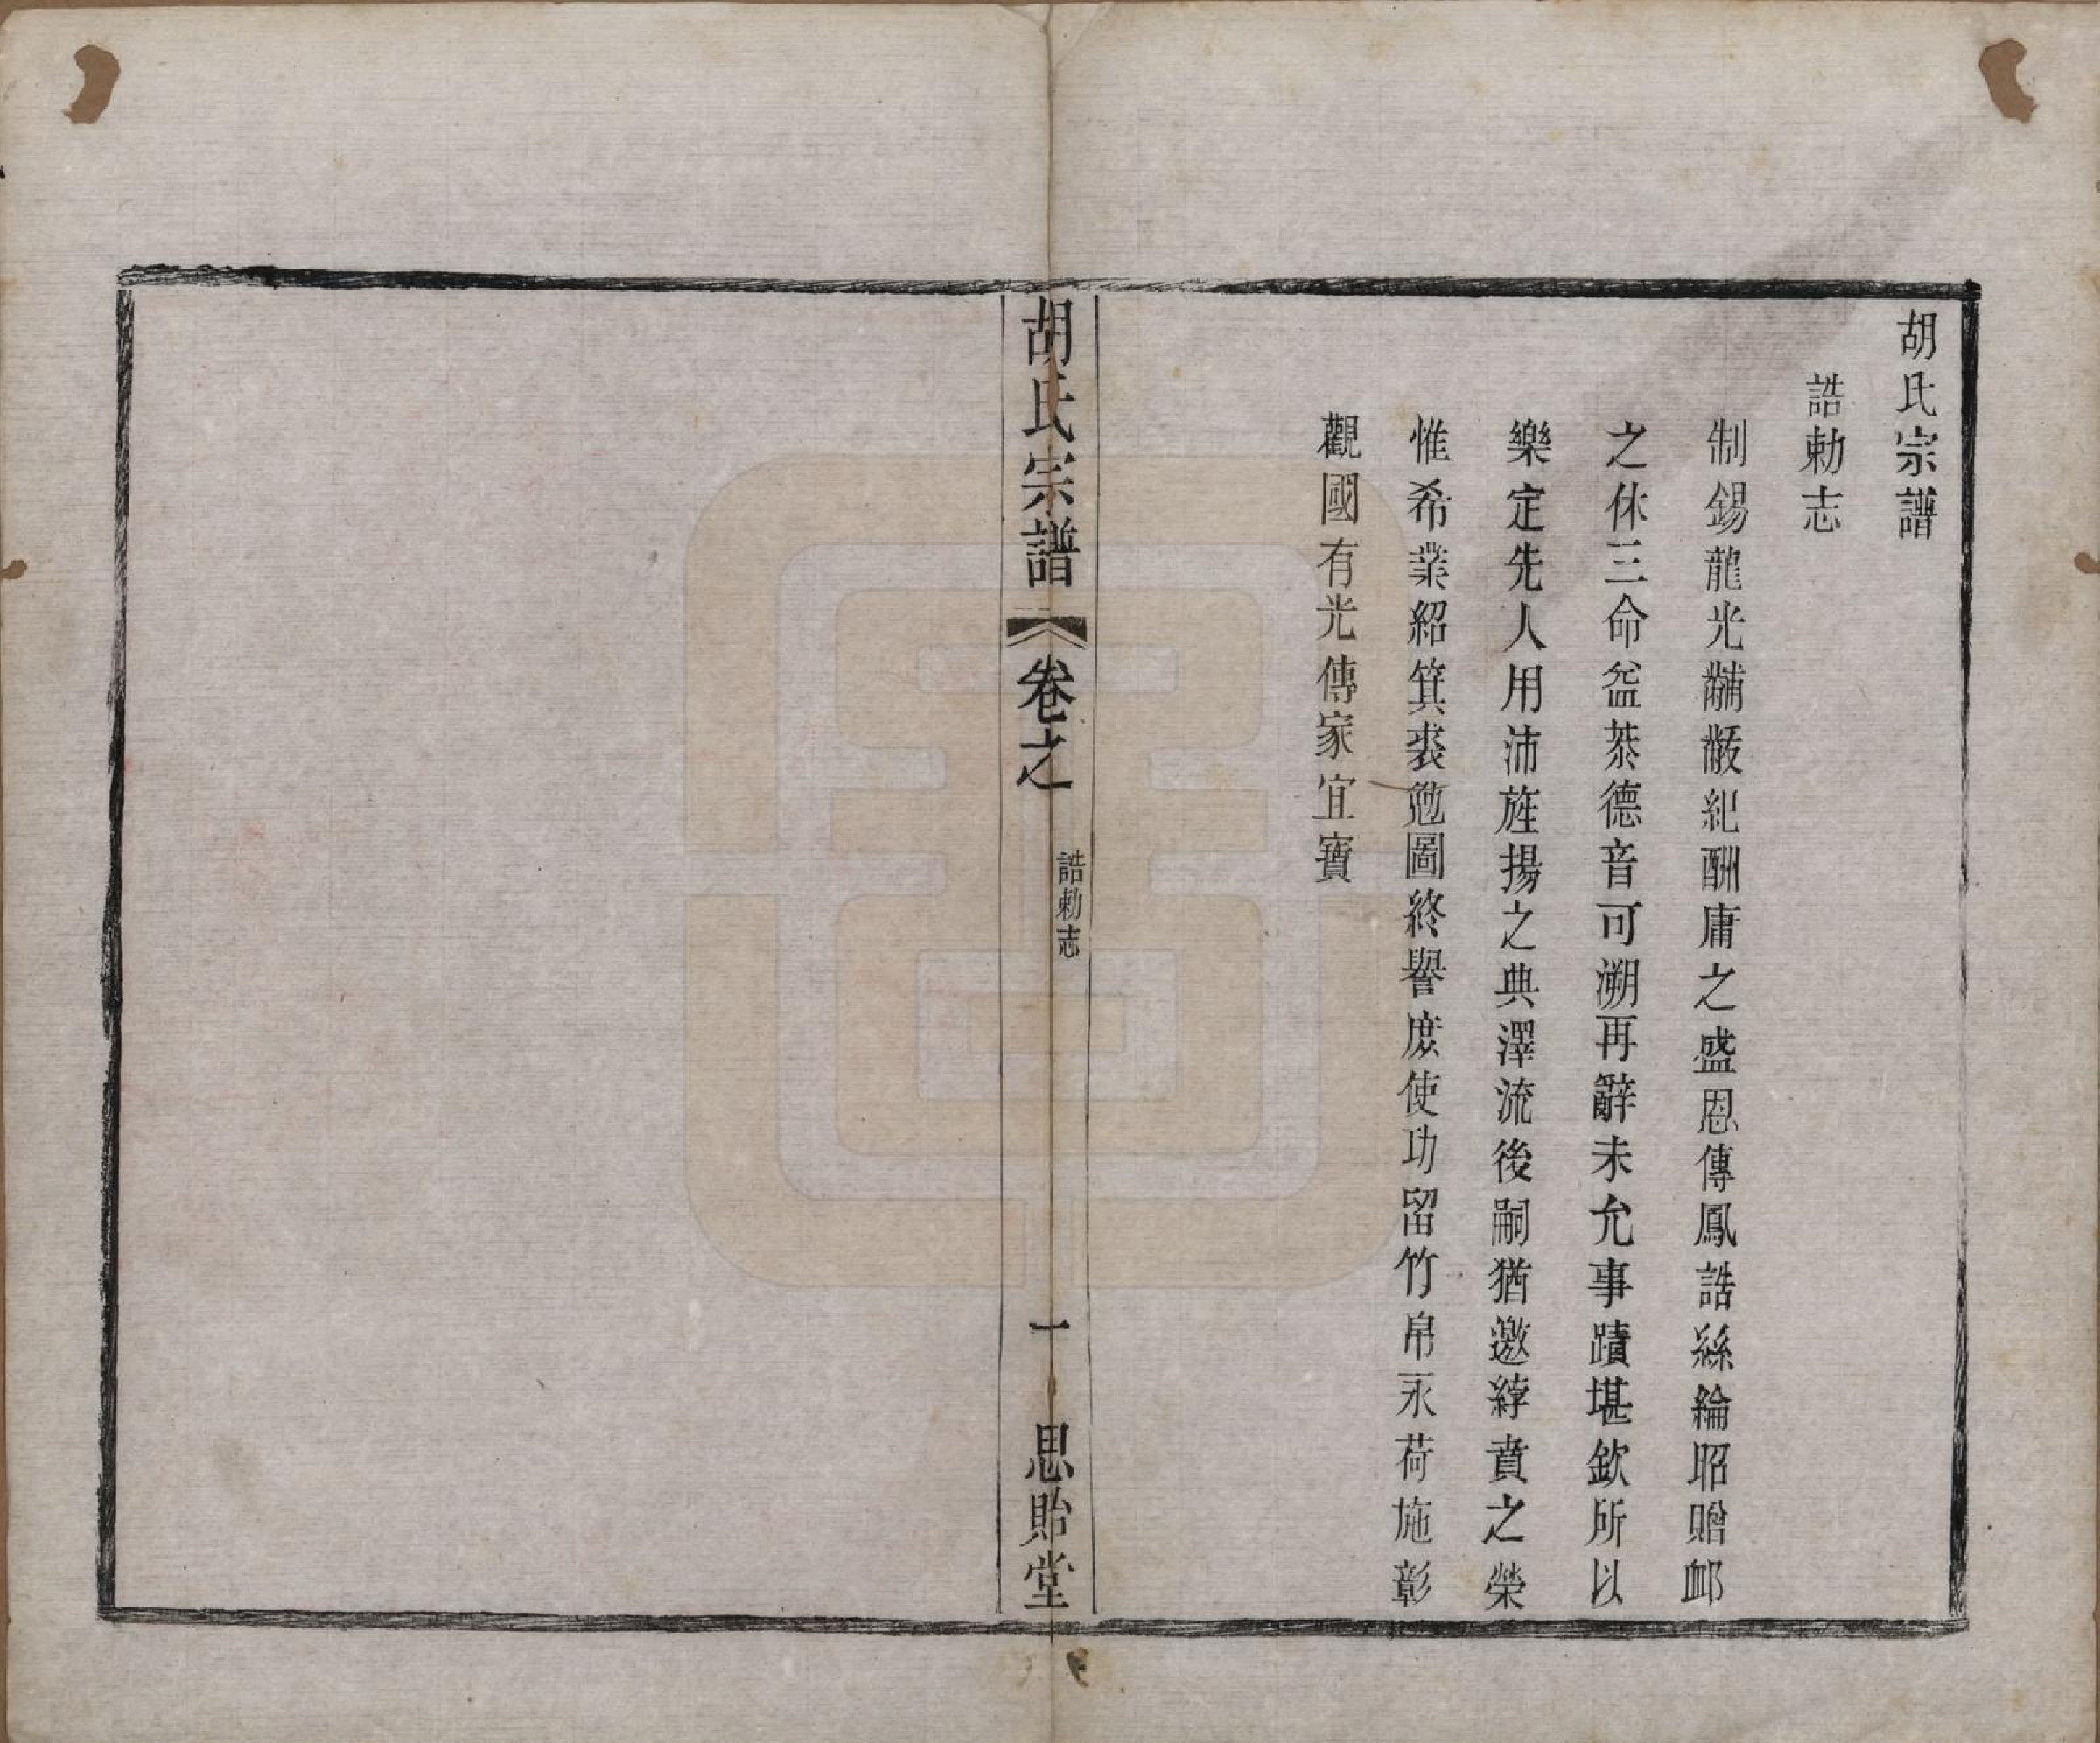 胡氏宗譜
誥勅志
制錫龍光黼黻紀酬庸之盛恩傳鳳誥絲綸昭贈䘏
之休三命益恭德音可溯再辭未允事蹟堪欽所以
樂定先人用沛旌揚之典澤流後嗣猶邀綍賁之榮
惟希業紹箕裘勉圖終譽庶使功留竹帛永荷施彰
觀國有光傳家宜寶
胡氏宗譜 卷之 誥勅志 一 思貽堂